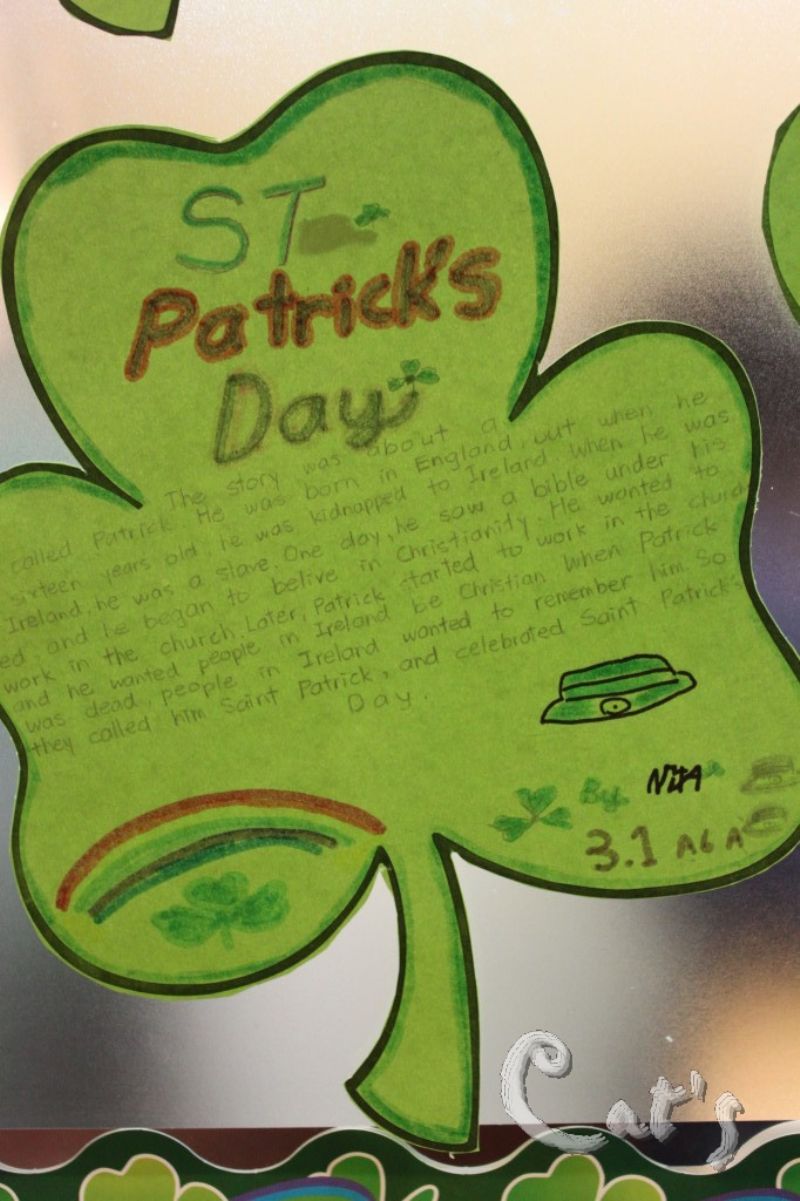 ST
Patrick's
Day
The story was about a
called Patrick. He was born in England, but when he
sixteen years old, he was kidnapped to Ireland. When he was
Ireland, he was a slave. One day, he saw a bible under his
ed and he began to belive in Christianity. He wanted to
work in the church. Later, Patrick started to work in the church
and he wanted people in Ireland be Christian. When Patrick
was dead, people in Ireland wanted to remember him. So
they called him Saint Patrick, and celebrated Saint Patrick's
Day.
By NitA
3.1 A6A
Cat's